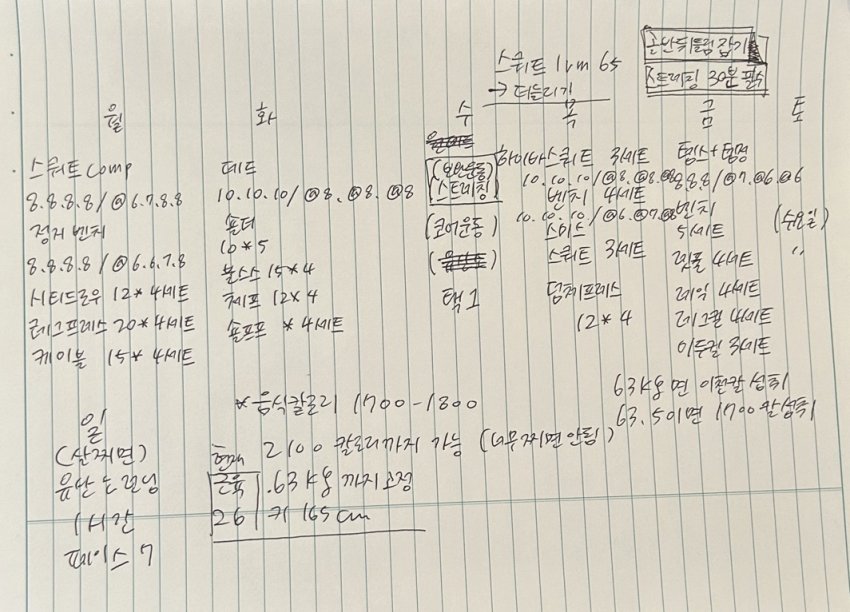 골반뒤틀림잡기
스트레칭 30분 필수
스쿼트 1rm 65
→ 더늘리기
월 화 수 목 금 토
스쿼트 comp
8.8.8.8/@6.7.8.8
정지 벤치
8.8.8.8/@6.6.7.8
시티드로우 12*4세트
레그프레스 20*4세트
케이블 15*4세트
데드
10.10.10/@8.@8.@8
숄더
10*5
불스스 15*4
체프 12*4
숄프프 *4세트
(보완운동)
(스트레칭)
(코어운동)
택1
하이바스쿼트 3세트
10.10.10/@8.@8.@8
벤치 4세트
10.10.10/@6.@7.@8
스미스
스쿼트 3세트
덤체프레스
12*4
8.8.8/@7.@6.@6
벤치
5세트
렛풀 4세트
레익 4세트
레그컬 4세트
이두컬 3세트
(수요일)
〃
일
(살찌면)
유산소런닝
1시간
페이스 7
*음식칼로리 1700-1800
현재 2100 칼로리까지 가능 (너무찌면안됨)
근육 .63kg 까지조정
26 키 165cm
63kg면 이천칼섭취
63.5이면 1700칼섭취